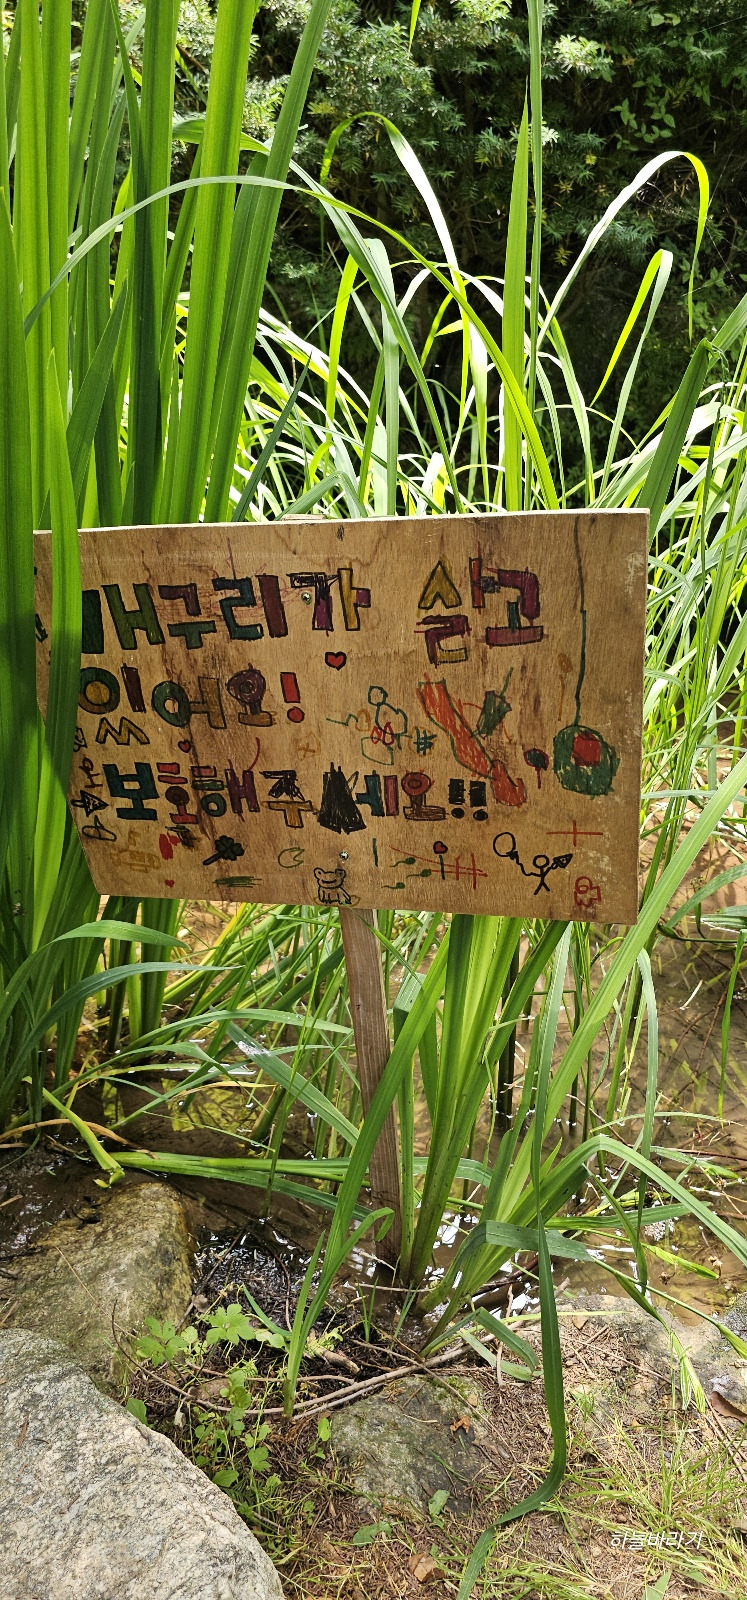 개구리가 살고
있어요!
보호해 주세요!!
하늘바라기